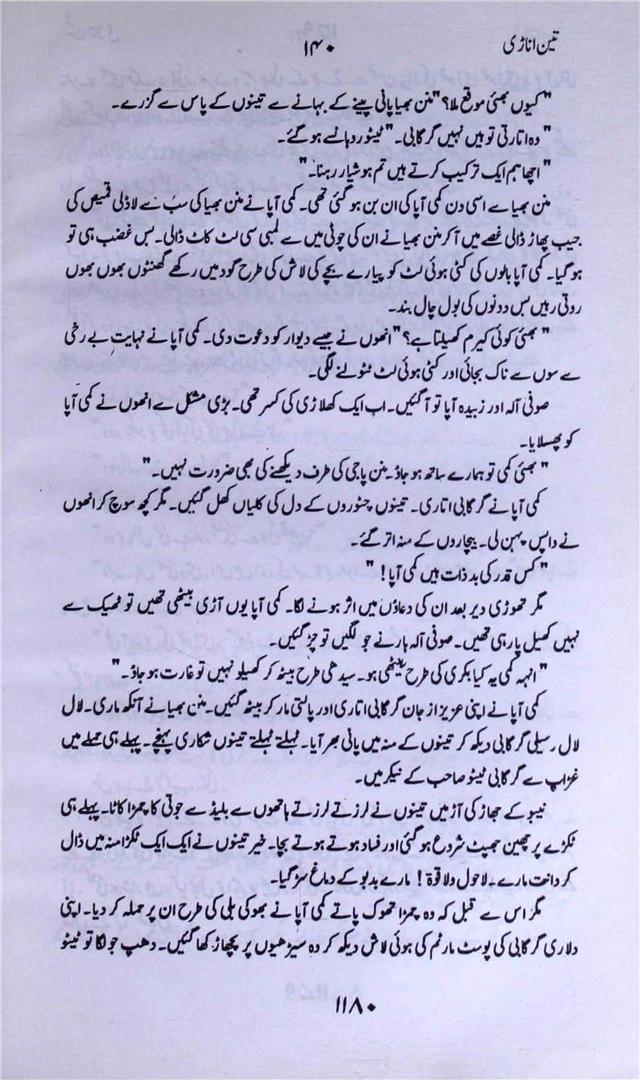 تین اناڑی
۱۴۰
"کیوں بھئی موقع ملا؟" منن بھیا پانی پینے کے بہانے سے تینوں کے پاس سے گزرے۔
"وہ اتارتی تو ہیں نہیں گرگابی۔" ٹیٹو روہانسے ہو گئے۔
"اچھا ہم ایک ترکیب کرتے ہیں تم ہوشیار رہنا۔"
منن بھیا سے اسی دن کمی آپا کی ان بن ہو گئی تھی۔ کمی آپا نے منن بھیا کی سب سے لاڈلی قمیض کی
جیب پھاڑ ڈالی غصے میں آ کر منن بھیا نے ان کی چوٹی میں سے لمبی سی لٹ کاٹ ڈالی۔ بس غضب ہی تو
ہو گیا۔ کمی آپا بالوں کی کٹی ہوئی لٹ کو پیارے بچے کی لاش کی طرح گود میں رکھے گھنٹوں بھوں بھوں
روتی رہیں بس دونوں کی بول چال بند۔
"بھئی کوئی کیرم کھیلتا ہے؟" انھوں نے جیسے دیوار کو دعوت دی۔ کمی آپا نے نہایت بے رخی
سے سوں سے ناک بجائی اور کٹی ہوئی لٹ ٹٹولنے لگی۔
صوفی آلہ اور زبیدہ آپا تو آ گئیں۔ اب ایک کھلاڑی کی کسر تھی۔ بڑی مشکل سے انھوں نے کمی آپا
کو پھسلایا۔
"بھئی کمی تو ہمارے ساتھ ہو جاؤ۔ منن پاجی کی طرف دیکھنے کی بھی ضرورت نہیں۔"
کمی آپا نے گرگابی اتاری۔ تینوں چٹوروں کے دل کی کلیاں کھل گئیں۔ مگر کچھ سوچ کر انھوں
نے واپس پہن لی۔ بیچاروں کے منہ اتر گئے۔
"کس قدر کی بدذات ہیں کمی آپا!"
مگر تھوڑی دیر بعد ان کی دعاؤں میں اثر ہونے لگا۔ کمی آپا یوں آڑی بیٹھی تھیں تو ٹھیک سے
نہیں کھیل پا رہی تھیں۔ صوفی آلہ ہارنے جو لگیں تو چڑ گئیں۔
"انہہ کمی یہ کیا بکری کی طرح بیٹھی ہو۔ سیدھی طرح بیٹھ کر کھیلو نہیں تو غارت ہو جاؤ۔"
کمی آپا نے اپنی عزیز از جان گرگابی اتاری اور پالتی مار کر بیٹھ گئیں۔ منن بھیا نے آنکھ ماری۔ لال
لال رسیلی گرگابی دیکھ کر تینوں کے منہ میں پانی بھر آیا۔ ٹہلتے ٹہلتے تینوں شکاری پہنچے۔ پہلے ہی حملے میں
غڑاپ سے گرگابی ٹیٹو صاحب کے نیکر میں۔
نیبو کے جھاڑ کی آڑ میں تینوں نے لرزتے لرزتے ہاتھوں سے بلیڈ سے جوتی کا چمڑا کاٹا۔ پہلے ہی
ٹکڑے پر چھین جھپٹ شروع ہو گئی اور فساد ہوتے ہوتے بچا۔ خیر تینوں نے ایک ایک ٹکڑا منہ میں ڈال
کر دانت مارے۔ لاحول ولا قوۃ! مارے بدبو کے دماغ سڑ گیا۔
مگر اس سے قبل کہ وہ چمڑا تھوک پاتے کمی آپا نے بھوکی بلی کی طرح ان پر حملہ کر دیا۔ اپنی
دلاری گرگابی کی پوسٹ مارٹم کی ہوئی لاش دیکھ کر وہ سیڑھیوں پر پچھاڑ کھا گئیں۔ دھپ جو لگا تو ٹیٹو
۱۱۸۰